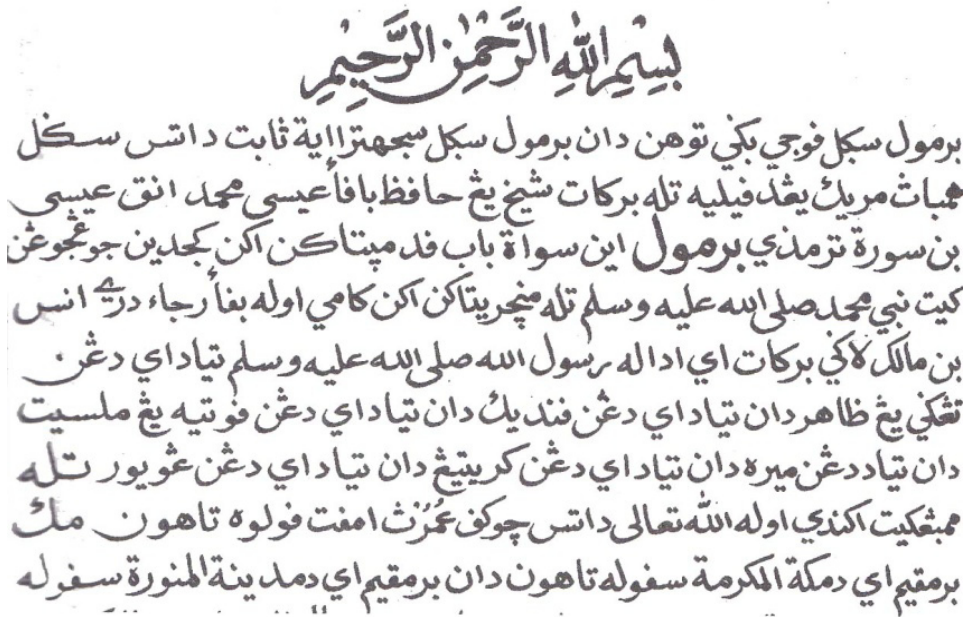 بِسْمِ اللّٰهِ الرَّحْمٰنِ الرَّحِيْمِ
برمول سكل فوجي بكي توهن دان برمول سكل سجهترا اية ثابت داتس سكل
همباث مريك يڠد فيليه تله بركات شيخ يڠ حافظ بافأ عيسى محمد انق عيسى
بن سورة ترمذي برمول اين سواة باب فد مپتاكن اكن كجدين جوڠجوڠن
كيت نبي محمد صلى الله عليه وسلم تله منچريتاكن اكن كامي اوله بفأ رجاء دري انس
بن مالك لاكي بركات اي اداله رسول الله صلى الله عليه وسلم تياد اي دڠن
تڠكي يڠ ظاهر دان تياد اي دڠن فنديك دان تياد اي دڠن فوتيه يڠ ملسيت
دان تياد دڠن ميره دان تياد اي دڠن كريتيڠ دان تياد اي دڠن ڠويور تله
ممبڠكيت اكندي اوله الله تعالى داتس چوكف عمرث امفت فولوه تاهون مك
برمقيم اي دمكة المكرمة سفوله تاهون دان برمقيم اي دمدينة المنورة سفوله